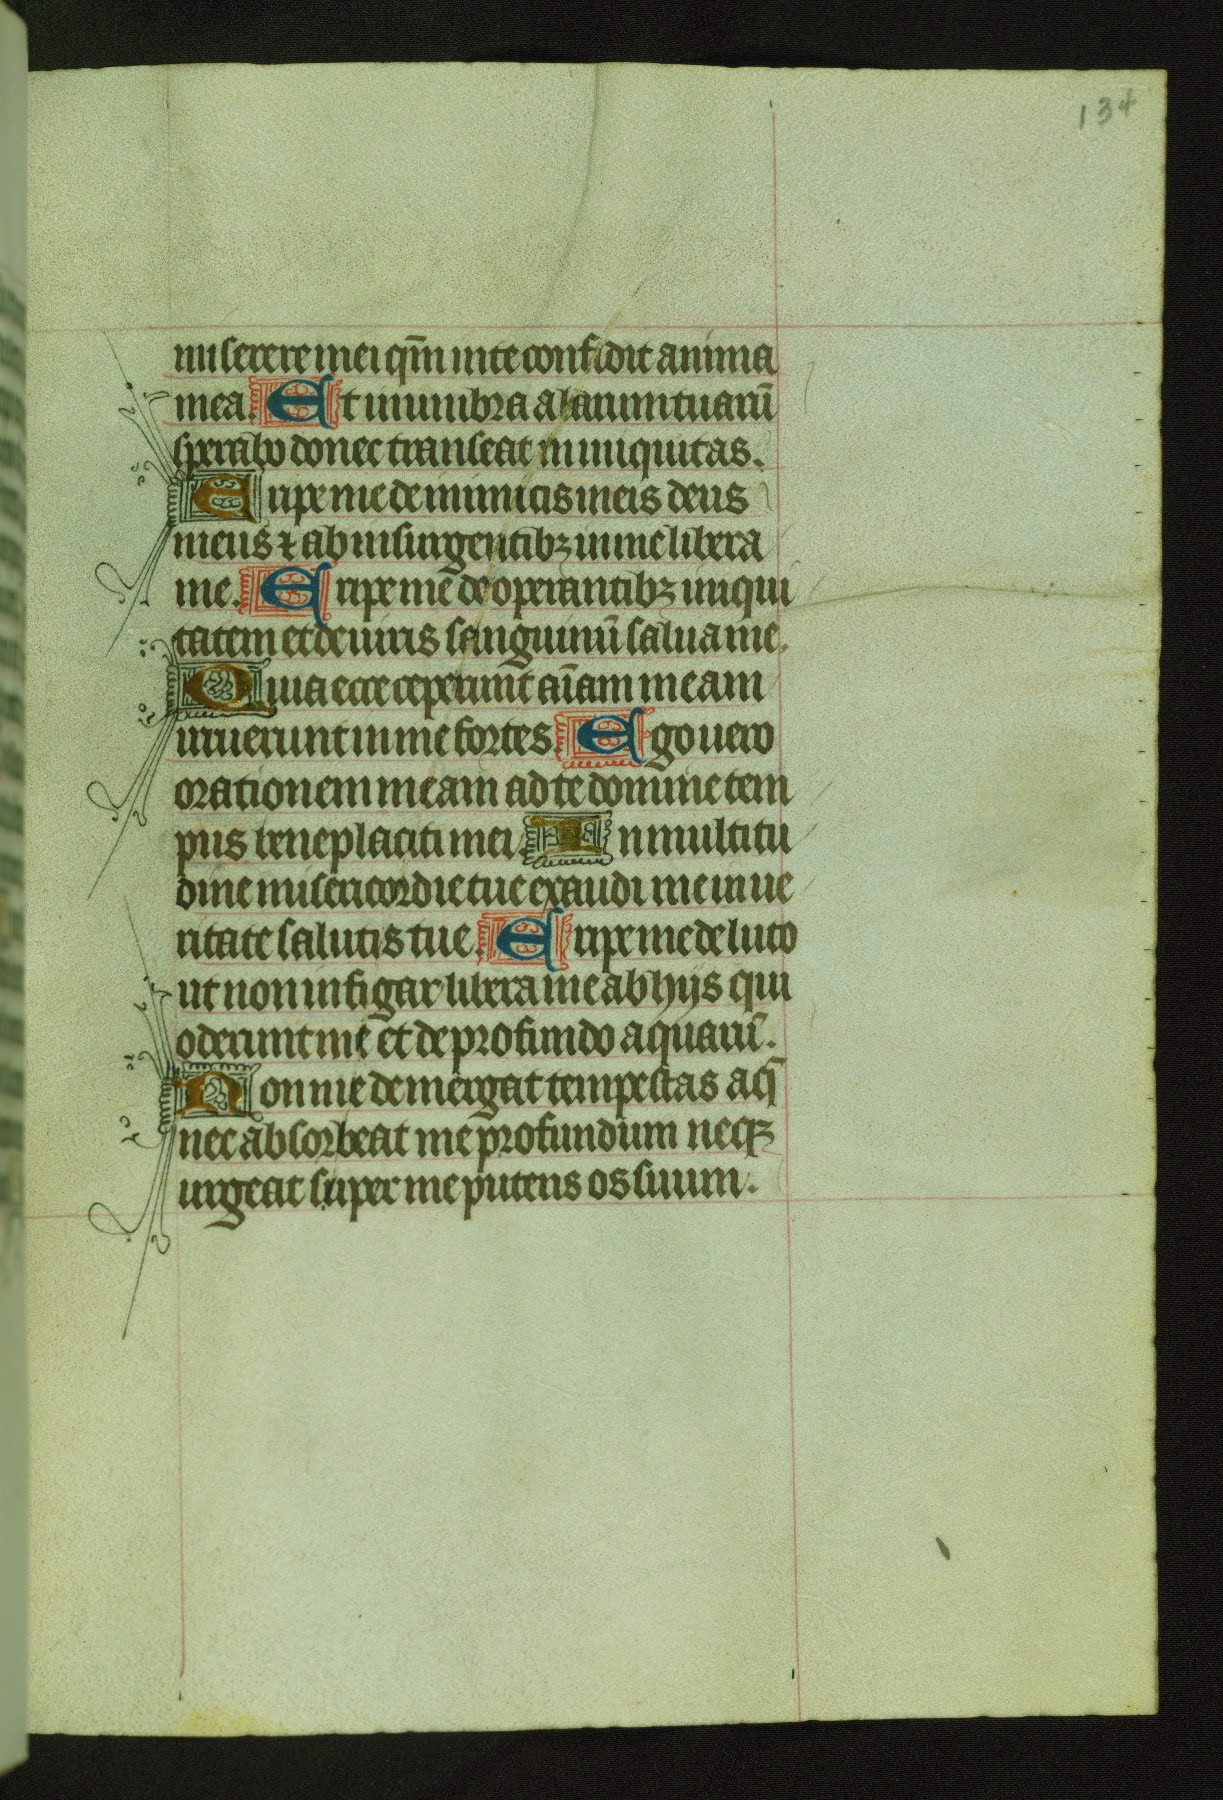 134
miserere mei qm̄ in te confidit anima
mea. Et in umbra alarum tuarū
sperabo donec transeat in iniquitas.
Eripe me de inimicis meis deus
meus ⁊ ab insurgentibꝫ in me libera
me. Eripe me de operantibꝫ iniqui
tatem et de uiris sanguinū salua me.
Quia ecce ceperunt aīam meam
irruerunt in me fortes. Ego uero
orationem meam ad te domine tem
pus beneplaciti mei. In multitu
dine misericordie tue exaudi me in ue
ritate salutis tue. Eripe me de luto
ut non infigar libera me ab hijs qui
oderunt me et de profundo aquarū.
Non me demergat tempestas aq̄
nec absorbeat me profundum neqꝫ
urgeat super me puteus os suum.